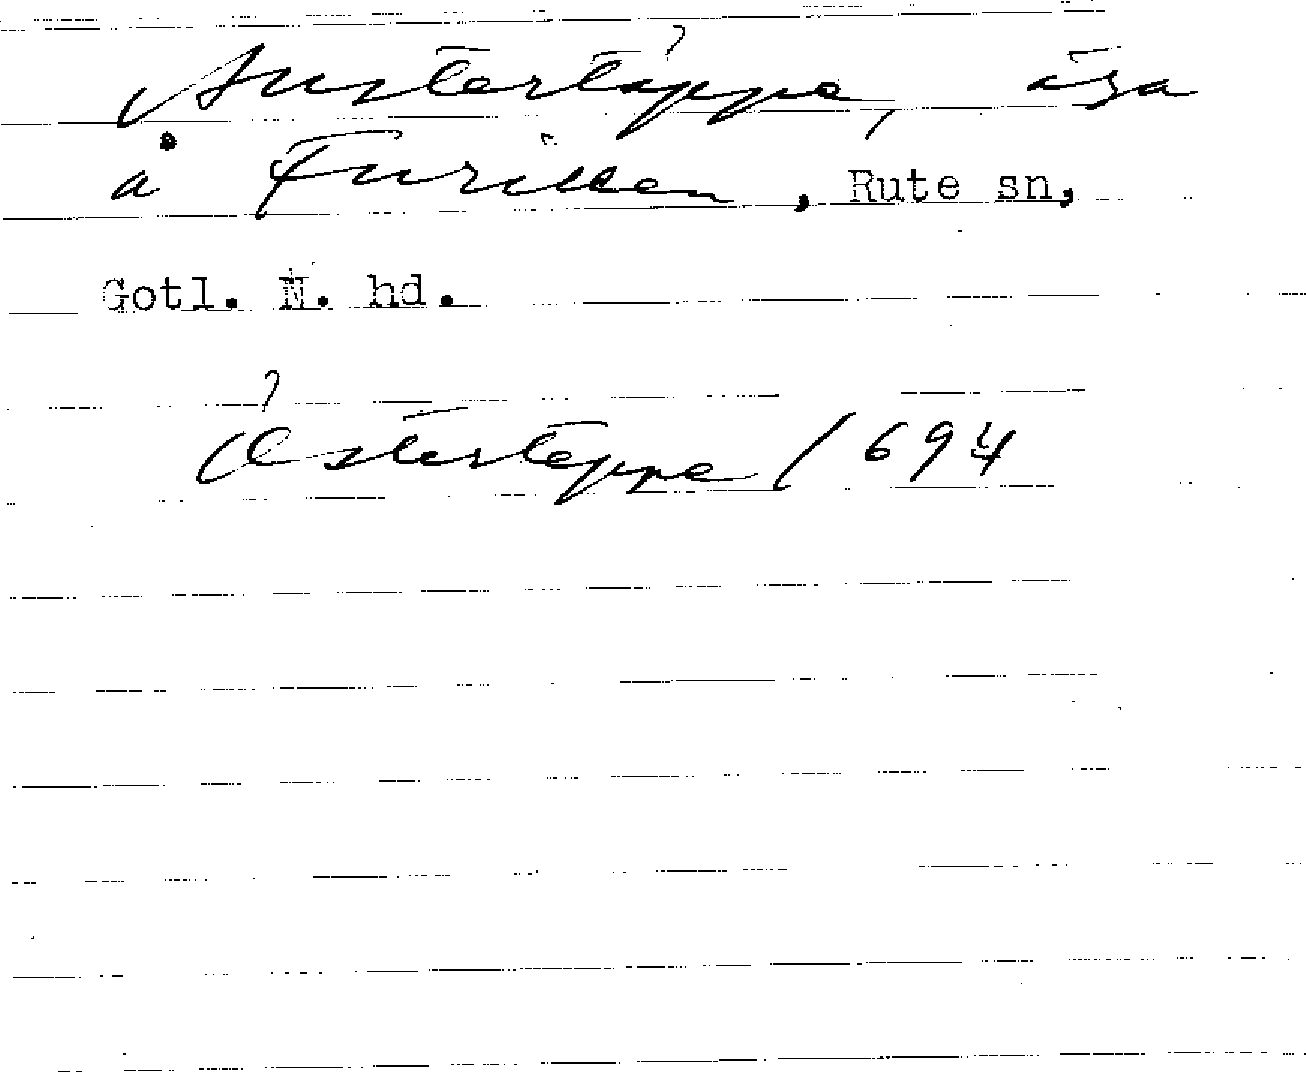 Austertäppa, äga
å Furillen, Rute sn,
Gotl. N. hd.
Östertäppa 1694